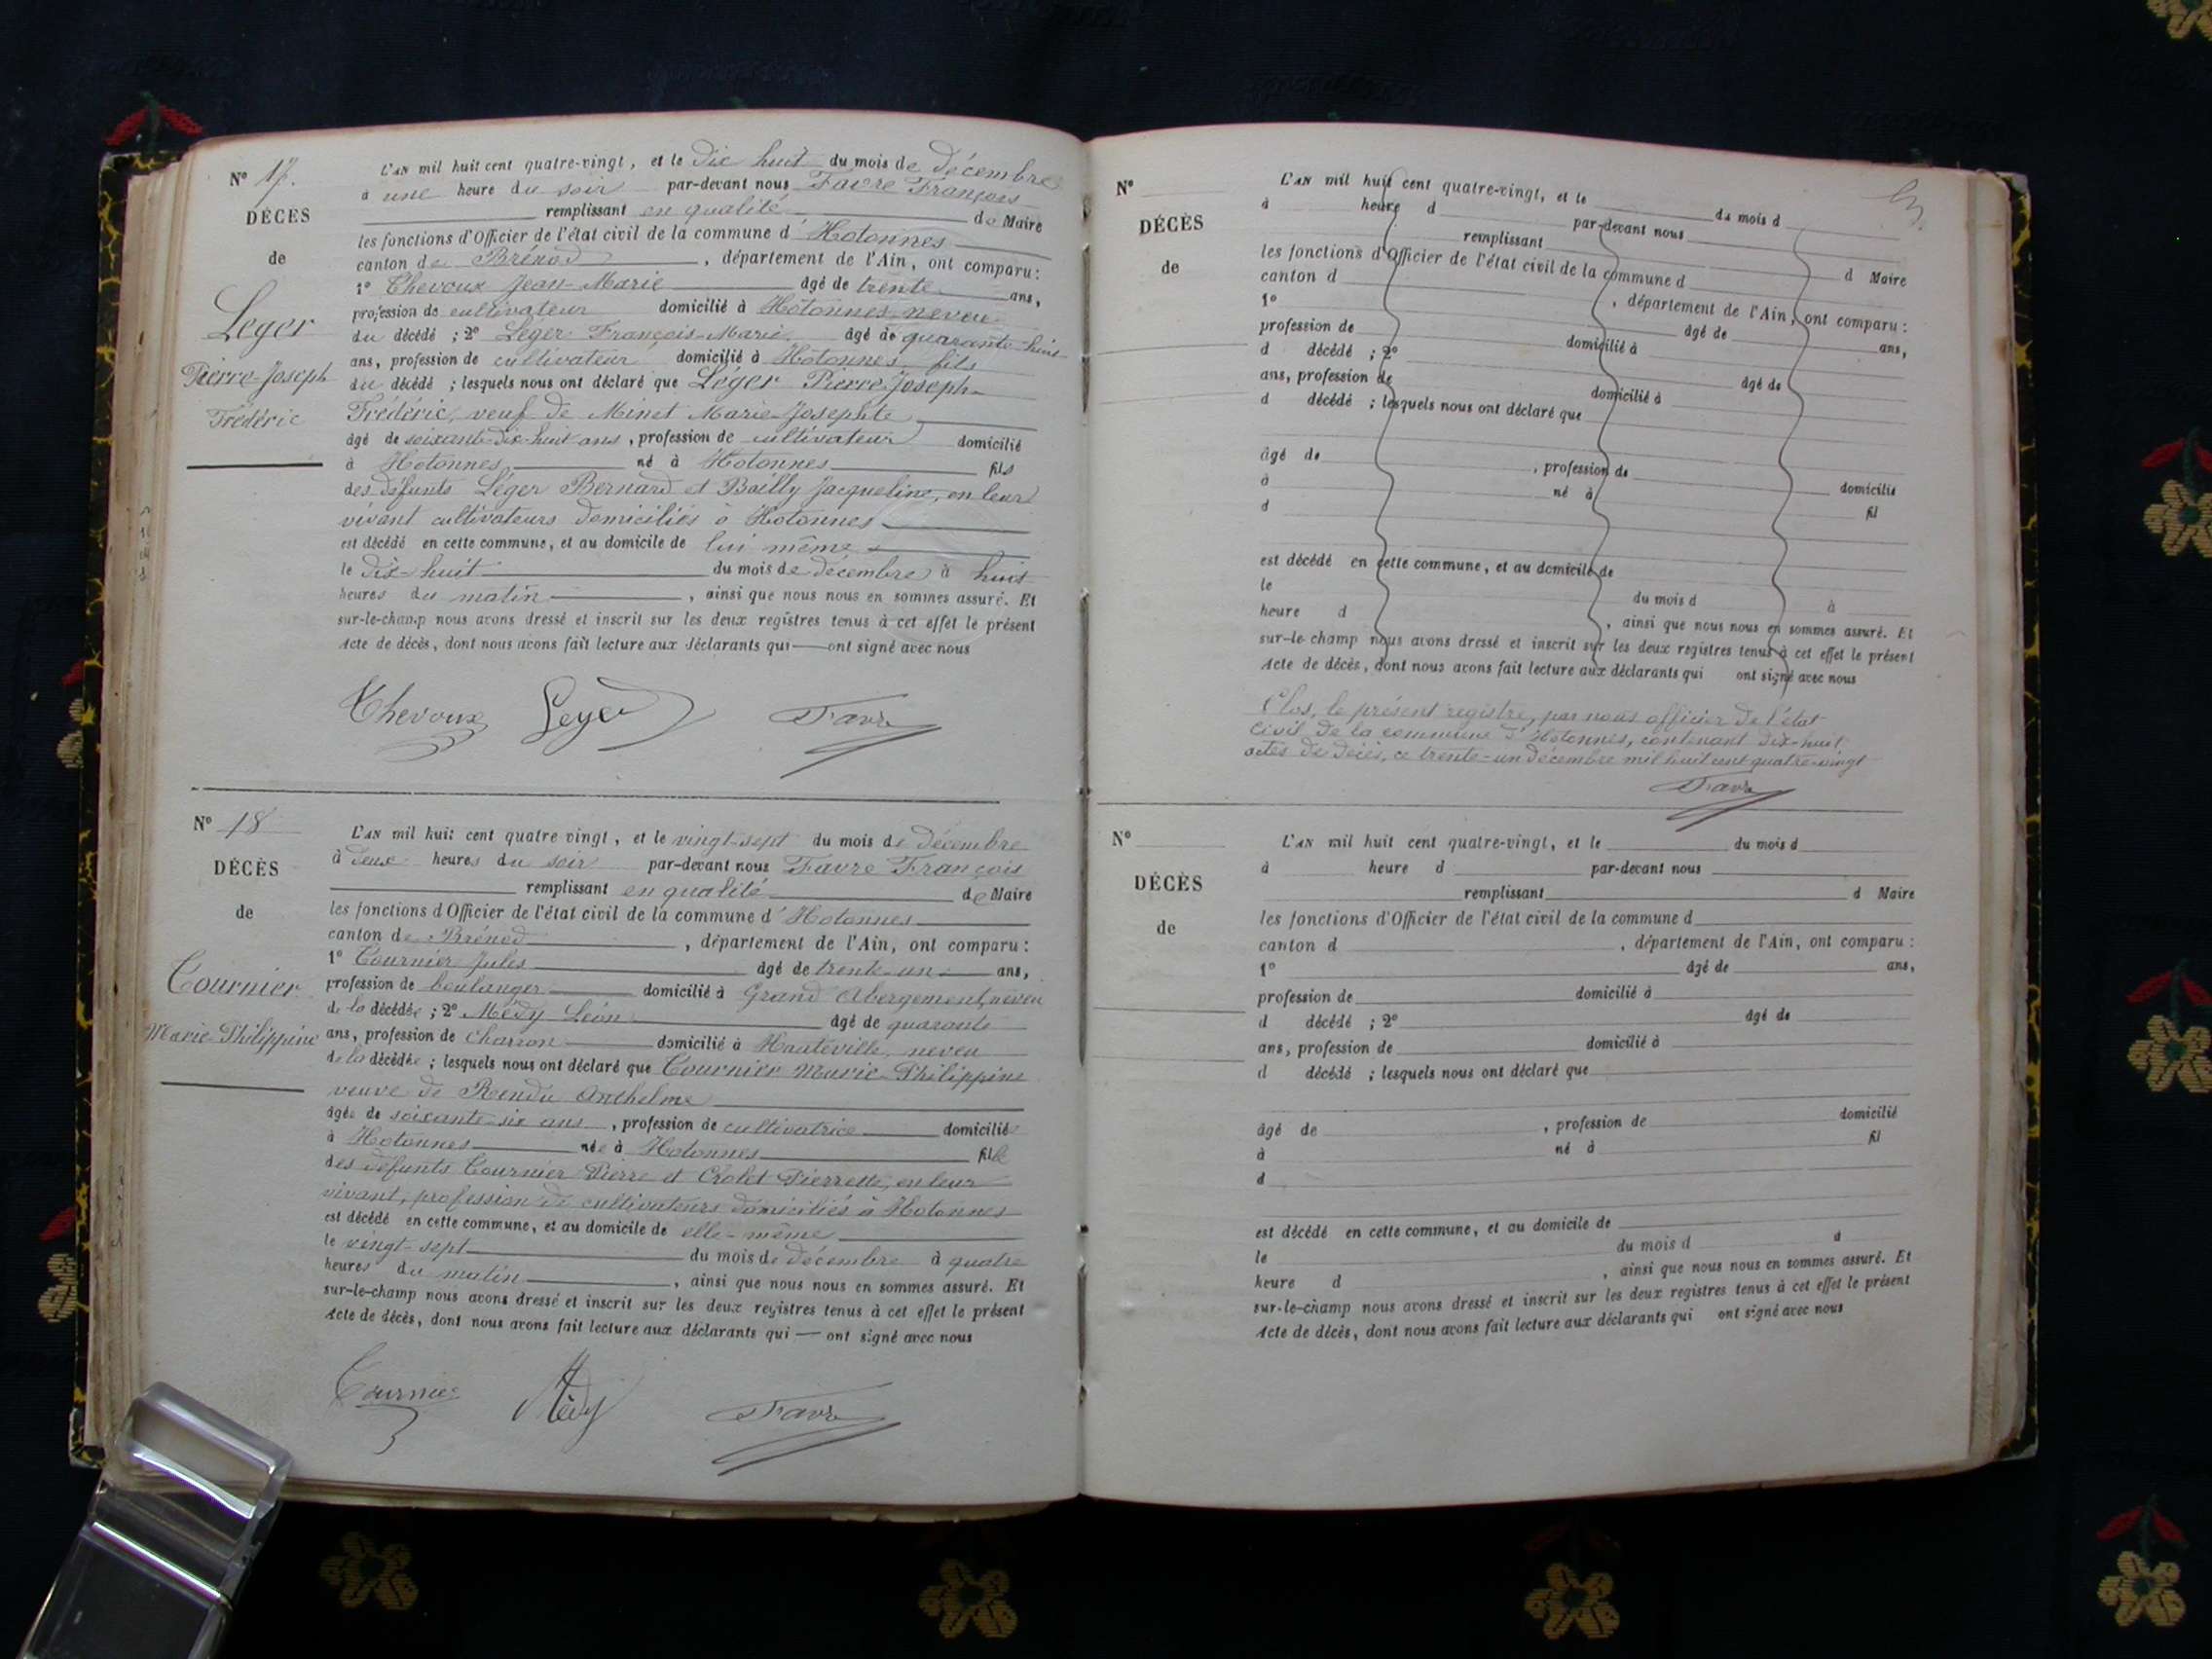 N° 17.
DÉCÈS
de
Leger
Pierre-Joseph
Frédéric
L'AN mil huit cent quatre-vingt, et le dix huit du mois de décembre
à une heure du soir par-devant nous Favre François
remplissant en qualité de Maire
les fonctions d'Officier de l'état civil de la commune d'Hotonnes
canton de Brénod, département de l'Ain, ont comparu:
1° Chevoux Jean-Marie âgé de trente ans,
profession de cultivateur domicilié à Hotonnes neveu
du décédé ; 2° Léger François-Marie âgé de quarante-huit
ans, profession de cultivateur domicilié à Hotonnes fils
du décédé ; lesquels nous ont déclaré que Léger Pierre Joseph
Frédéric, veuf de Minet Marie-Josephte
âgé de soixante-dix-huit ans, profession de cultivateur domicilié
à Hotonnes né à Hotonnes fils
des défunts Léger Bernard et Bailly Jacqueline, en leur
vivant cultivateurs domiciliés à Hotonnes
est décédé en cette commune, et au domicile de lui même
le dix-huit du mois de décembre à huit
heures du matin, ainsi que nous nous en sommes assuré. Et
sur-le-champ nous avons dressé et inscrit sur les deux registres tenus à cet effet le présent
Acte de décès, dont nous avons fait lecture aux déclarants qui — ont signé avec nous
Chevoux Leger Favre
N° 18
DÉCÈS
de
Tournier
Marie-Philippine
L'AN mil huit cent quatre vingt, et le vingt-sept du mois de décembre
à deux heures du soir par-devant nous Favre François
remplissant en qualité de Maire
les fonctions d'Officier de l'état civil de la commune d'Hotonnes
canton de Brénod, département de l'Ain, ont comparu:
1° Tournier Jules âgé de trente-un ans,
profession de boulanger domicilié à Grand Abergement, neveu
de la décédée ; 2° Médy Léon âgé de quarante
ans, profession de Charron domicilié à Hauteville, neveu
de la décédée ; lesquels nous ont déclaré que Tournier Marie-Philippine
veuve de Rendu Anthelme
âgée de soixante-six ans, profession de cultivatrice domicilié
à Hotonnes née à Hotonnes fille
des défunts Tournier Pierre et Crolet Pierrette, en leur
vivant, profession de cultivateurs domiciliés à Hotonnes
est décédé en cette commune, et au domicile de elle-même
le vingt-sept du mois de décembre à quatre
heures du matin, ainsi que nous nous en sommes assuré. Et
sur-le-champ nous avons dressé et inscrit sur les deux registres tenus à cet effet le présent
Acte de décès, dont nous avons fait lecture aux déclarants qui — ont signé avec nous
Tournier Médy Favre
N°
DÉCÈS
de
L'AN mil huit cent quatre-vingt, et le du mois d
à heure d par-devant nous
remplissant d Maire
les fonctions d'Officier de l'état civil de la commune d
canton d , département de l'Ain, ont comparu:
1° âgé de ans,
profession de domicilié à
d décédé ; 2° âgé de
ans, profession de domicilié à
d décédé ; lesquels nous ont déclaré que
âgé de , profession de domicilié
à né à fil
d
est décédé en cette commune, et au domicile de
le du mois d à
heure d , ainsi que nous nous en sommes assuré. Et
sur-le-champ nous avons dressé et inscrit sur les deux registres tenus à cet effet le présent
Acte de décès, dont nous avons fait lecture aux déclarants qui ont signé avec nous
Clos, le présent registre, par nous officier de l'état
civil de la commune d'Hotonnes, contenant dix-huit
actes de décès, ce trente-un décembre mil huit cent quatre-vingt
Favre
N°
DÉCÈS
de
L'AN mil huit cent quatre-vingt, et le du mois d
à heure d par-devant nous
remplissant d Maire
les fonctions d'Officier de l'état civil de la commune d
canton d , département de l'Ain, ont comparu:
1° âgé de ans,
profession de domicilié à
d décédé ; 2° âgé de
ans, profession de domicilié à
d décédé ; lesquels nous ont déclaré que
âgé de , profession de domicilié
à né à fil
d
est décédé en cette commune, et au domicile de
le du mois d à
heure d , ainsi que nous nous en sommes assuré. Et
sur-le-champ nous avons dressé et inscrit sur les deux registres tenus à cet effet le présent
Acte de décès, dont nous avons fait lecture aux déclarants qui ont signé avec nous